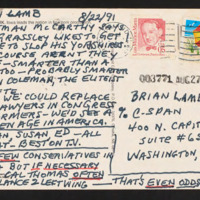 LAMB 8/22/91
TMAN McCARTHY SAYS
GRASSLEY LIKES TO GET
TO SLOP HIS YORKSHIRES
COURSE AREN'T THEY
SMARTER THAN A
TOO - PROBABLY SMARTER
COLEMAN, THE ELITE

WE COULD REPLACE
LAWYERS IN CONGRESS
FARMERS - WE'D SEE A
EN AGE IN AMERICA.
AN, SUSAN ED - ALL
BY. BEST ON T.V.
FEW CONSERVATIVES IN
BUT IF NECESSARY
CAL THOMAS OFTEN
LANCE 2 LEFTWING
003771 AUG 27
BRIAN LAMB
% C-SPAN
400 N. CAPIT
SUITE #65
WASHINGTON,
THATS EVEN ODDS